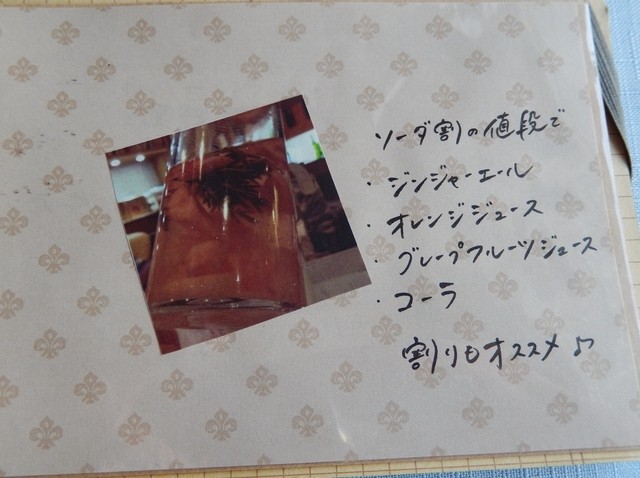 ソーダ割の値段で
・ジンジャーエール
・オレンジジュース
・グレープフルーツジュース
・コーラ
割りもオススメ♪